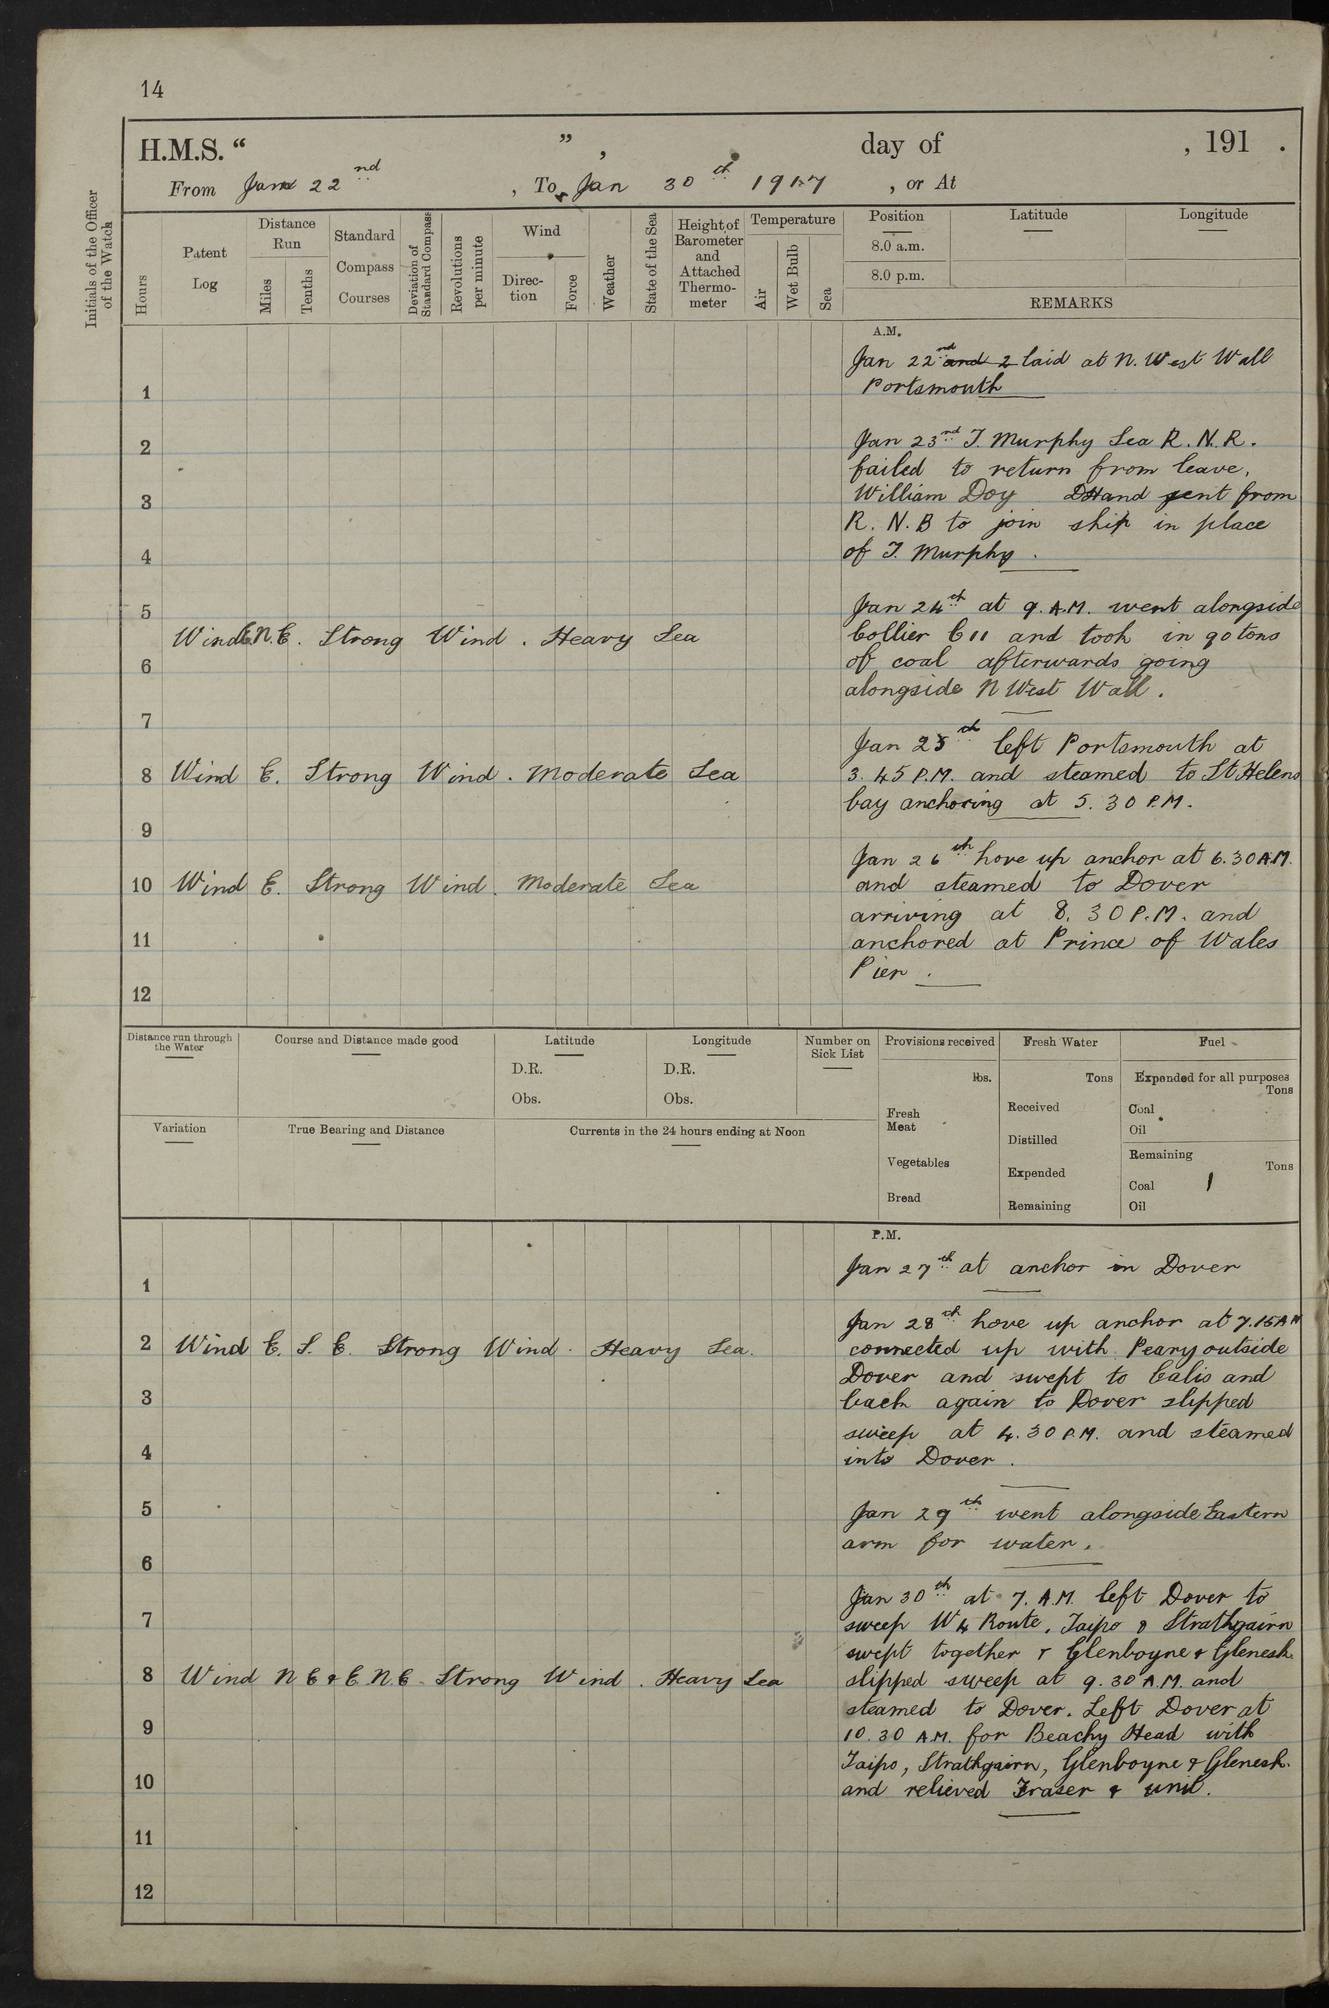 14
H.M.S. “ ” , day of , 191 .
From Jan 22nd , To Jan 30th 1917 , or At
Initials of the Officer of the Watch
Hours
Patent Log
Distance Run
Miles
Tenths
Standard Compass Courses
Deviation of Standard Compass
Revolutions per minute
Wind
Direction
Force
Weather
State of the Sea
Height of Barometer and Attached Thermometer
Temperature
Air
Wet Bulb
Sea
Position
8.0 a.m.
8.0 p.m.
Latitude
Longitude
REMARKS
A.M.
Jan 22nd and 2 laid at N. West Wall
Portsmouth
1
Jan 23rd J. Murphy Sea R.N.R.
2
failed to return from leave,
William Doy DHand sent from
3
R.N.B to join ship in place
of J. Murphy.
4
Jan 24th at 9. A.M. went alongside
5
Wind E.N.E. Strong Wind. Heavy Sea
Collier C11 and took in 90 tons
of coal afterwards going
6
alongside N West Wall.
7
Jan 25th left Portsmouth at
8 Wind E. Strong Wind. Moderate Sea
3.45 P.M. and steamed to St Helens
bay anchoring at 5.30 P.M.
9
Jan 26th hove up anchor at 6.30 A.M.
10 Wind E. Strong Wind. Moderate Sea
and steamed to Dover
arriving at 8.30 P.M. and
11
anchored at Prince of Wales
Pier.
12
Distance run through the Water
Course and Distance made good
Latitude
D.R.
Obs.
Longitude
D.R.
Obs.
Number on Sick List
Provisions received
lbs.
Fresh Meat
Vegetables
Bread
Fresh Water
Tons
Received
Distilled
Expended
Remaining
Fuel
Expended for all purposes
Tons
Coal
Oil
Remaining
Tons
Coal
Oil
Variation
True Bearing and Distance
Currents in the 24 hours ending at Noon
P.M.
Jan 27th at anchor in Dover
1
Jan 28th hove up anchor at 7.15 AM
2 Wind E.S.E. Strong Wind. Heavy Sea.
connected up with Peary outside
Dover and swept to Calis and
3
back again to Dover slipped
sweep at 4.30 P.M. and steamed
4
into Dover.
5
Jan 29th went alongside Eastern
arm for water.
6
Jan 30th at 7. A.M. left Dover to
7
sweep W4 Route. Taipo & Strathgairn
swept together & Glenboyne & Glenesk.
8 Wind N E & E.N.E. Strong Wind. Heavy Sea
slipped sweep at 9.30 A.M. and
steamed to Dover. Left Dover at
9
10.30 A.M. for Beachy Head with
Taipo, Strathgairn, Glenboyne & Glenesk.
10
and relieved Fraser & unit.
11
12